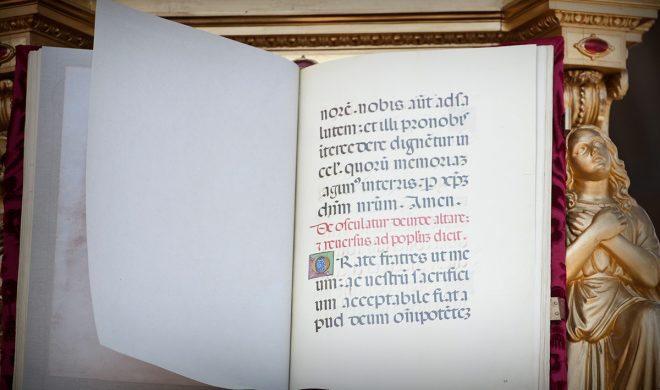 norē. nobis aūt ad sa
lutem: et illi pro nobis
intercedere dignētur in
cel. quorū memoriaʒ
agimꝰ in terris. P xp̄ʒ
dn̄m nrūm. Amen.
De osculatur deinde altare:
⁊ reversus ad populūʒ dicit.
ORate fratres ut me
um: ac vestrū sacrifici
um acceptabile fiat a
pud deum om̄ipotētēʒ